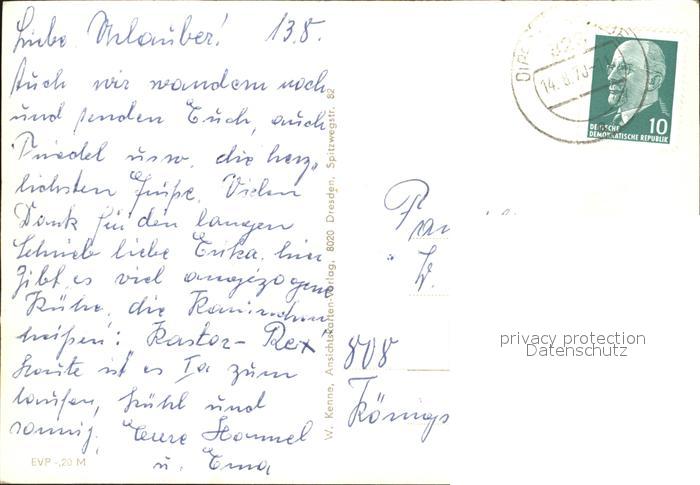 Liebe Urlauber! 13.8.
Auch wir wandern noch
und senden Euch, auch
Friedel usw. die herz-
lichsten Grüße. Vielen
Dank für den langen
Schrieb liebe Erika. hier
gibt es viel
Kühe, die Kaninchen
heißen: Kastor-Rex
heute ist es Ia zum
laufen, kühl und
sonnig. Eure Hannel
u. Erna
EVP -,20 M
W. Kenne, Ansichtskarten-Verlag, 8020 Dresden, Spitzwegstr. 82
14.8.70
DEUTSCHE
DEMOKRATISCHE REPUBLIK
10
Fam
W.
808
Königs
privacy protection
Datenschutz